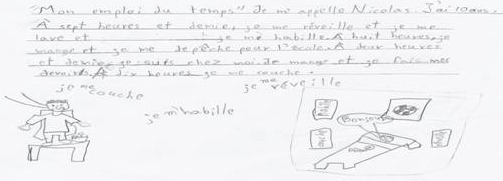 "Mon emploi du temps" Je m'appelle Nicolas. J'ai 10 ans.
À sept heures et demie, je me réveille et je me
lave et je me habille. À huit heures, je
mange et je me dépêche pour l'école. À deux heures
et demie, je suis chez moi. Je mange et je fais mes
devoirs. À dix heures je me couche.
je me couche
je me réveille
je m'habille
Bonjour